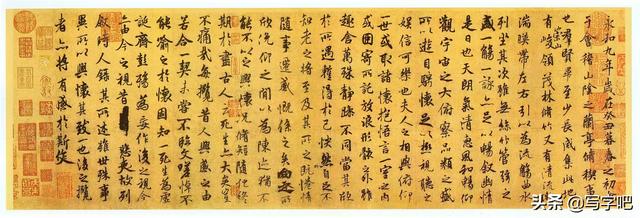 永和九年歲在癸丑暮春之初會
于會稽山陰之蘭亭脩稧事
也羣賢畢至少長咸集此地
有崇山峻領茂林脩竹又有清流激
湍暎帶左右引以為流觴曲水
列坐其次雖無絲竹管弦之
盛一觴一詠亦足以暢敘幽情
是日也天朗氣清惠風和暢仰
觀宇宙之大俯察品類之盛
所以遊目騁懷足以極視聽之
娛信可樂也夫人之相與俯仰
一世或取諸懷抱悟言一室之內
或因寄所託放浪形骸之外雖
趣舍萬殊靜躁不同當其欣
於所遇蹔得於己怏然自足不
知老之將至及其所之既惓情
隨事遷感慨係之矣向之所
欣俛仰之閒以為陳迹猶不
能不以之興懷況脩短隨化終
期於盡古人云死生亦大矣豈
不痛哉每攬昔人興感之由
若合一契未嘗不臨文嗟悼不
能喻之於懷固知一死生為虛
誕齊彭殤為妄作後之視今
亦由今之視昔悲夫故列
敘時人錄其所述雖世殊事
異所以興懷其致一也後之攬
者亦將有感於斯文
头条 @写字吧